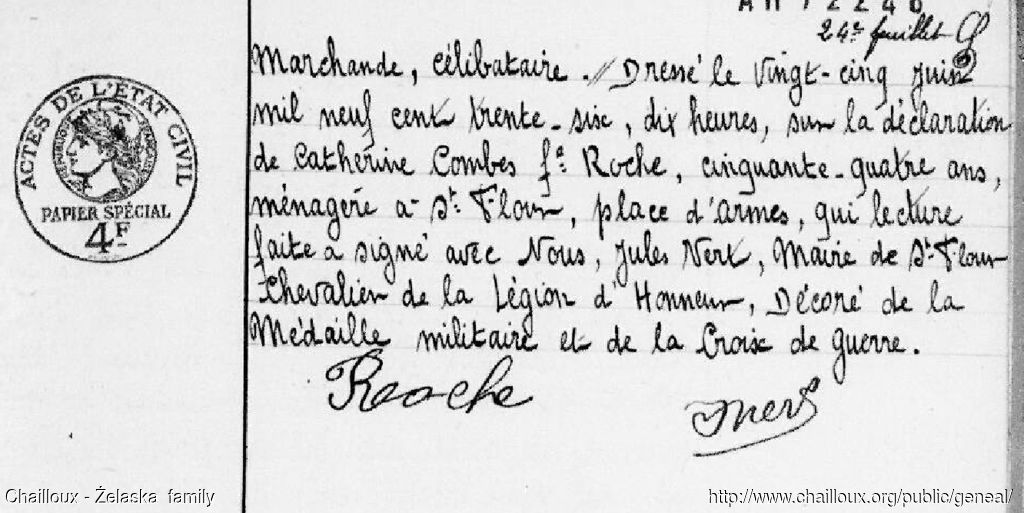 24e feuillet
Marchande, célibataire. // Dressé le Vingt-cinq Juin
mil neuf cent trente-six, dix heures, sur la déclaration
de Catherine Combes fe Roche, cinquante-quatre ans,
ménagère à St Flour, place d'armes, qui lecture
faite a signé avec Nous, Jules Nert, Maire de St Flour
Chevalier de la Légion d'Honneur, Décoré de la
Médaille militaire et de la Croix de guerre.
Roche
Nert
ACTES DE L'ÉTAT CIVIL
PAPIER SPÉCIAL
4F
Chailloux - Želaska family
http://www.chailloux.org/public/geneal/